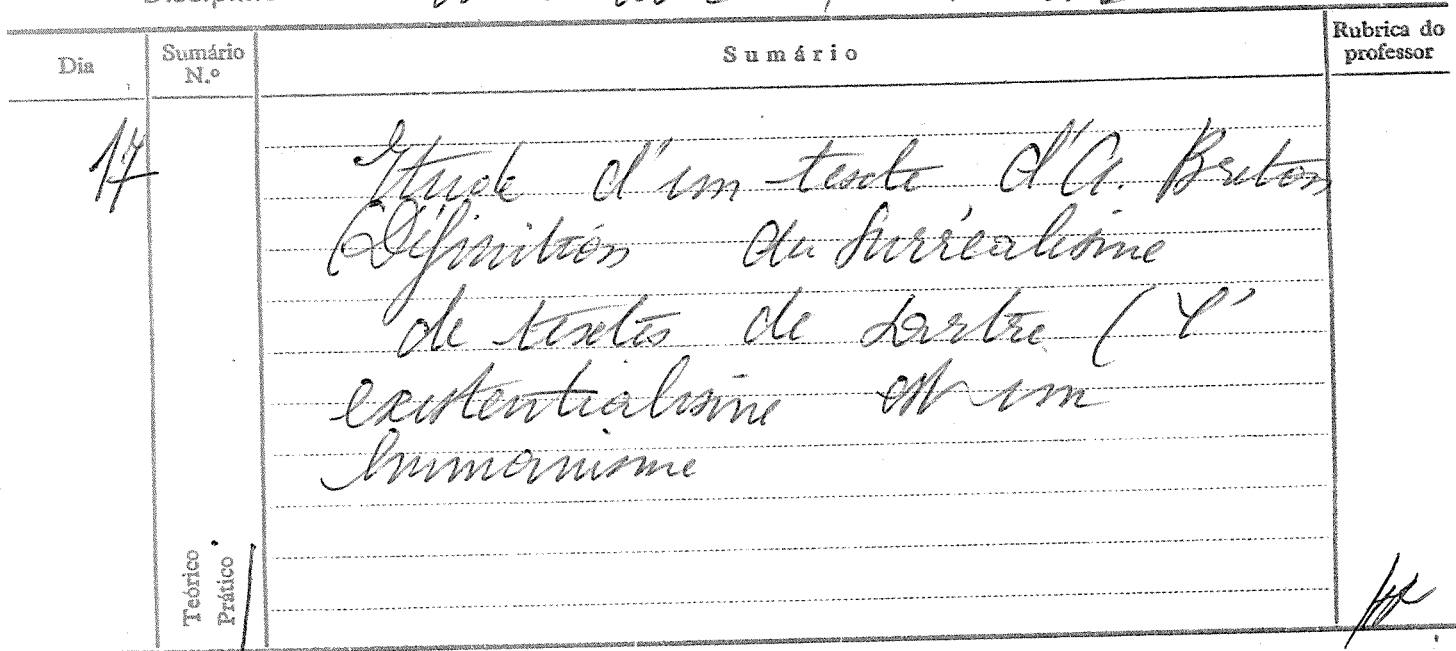 Dia
Sumário N.º
Sumário
Rubrica do professor
17
Etude d'un texte d'A. Breton
(Définition du Surréalisme
de textes de Sartre (L'
existentialisme est un
humanisme
Teórico
Prático